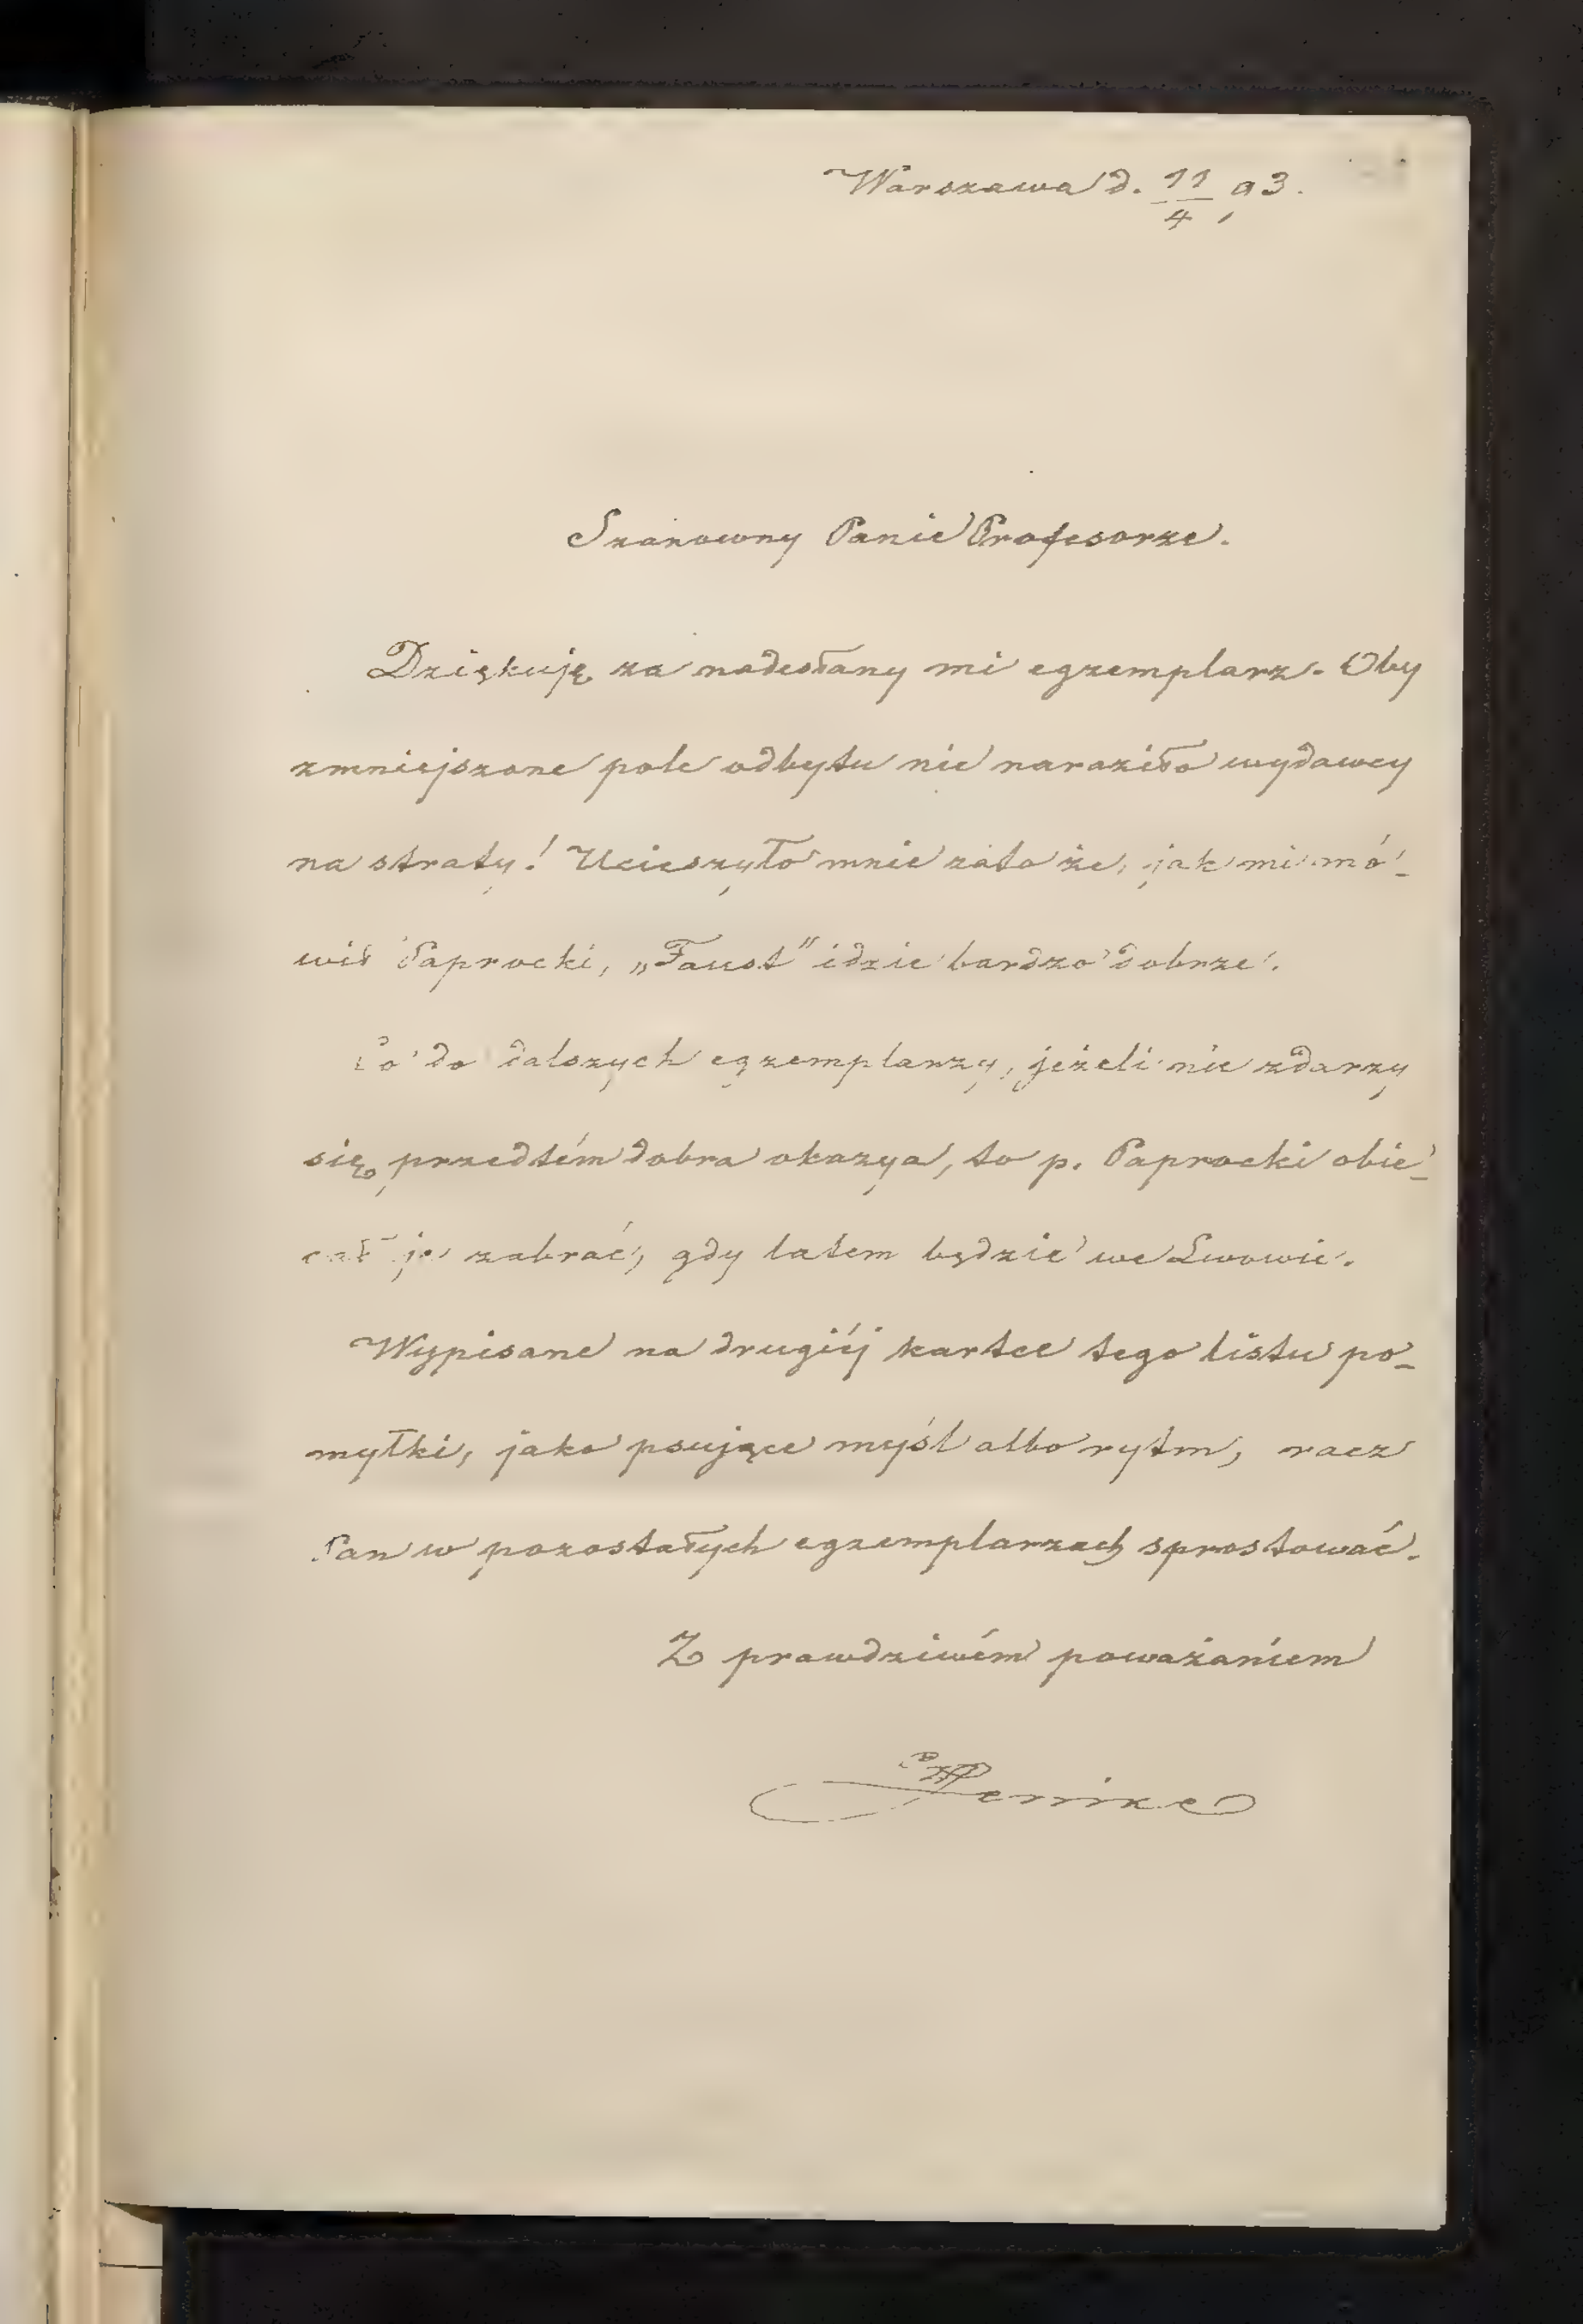 Warszawa d. 11/4, 93.
Szanowny Panie Profesorze.
Dziękuję za nadesłany mi egzemplarz. Oby
zmniejszone pole odbytu nie naraziło wydawcy
na straty! Ucieszyło mnie zato że, jak mi mó-
wił Paprocki, „Faust" idzie bardzo dobrze.
Co do dalszych egzemplarzy, jeżeli nie zdarzy
się przedtém dobra okazya, to p. Paprocki obie-
cał je zabrać, gdy latem będzie we Lwowie.
Wypisane na drugiéj kartce tego listu po-
myłki, jako psujące myśl albo rytm, racz
Pan w pozostałych egzemplarzach sprostować.
Z prawdziwém poważaniem
Jenike